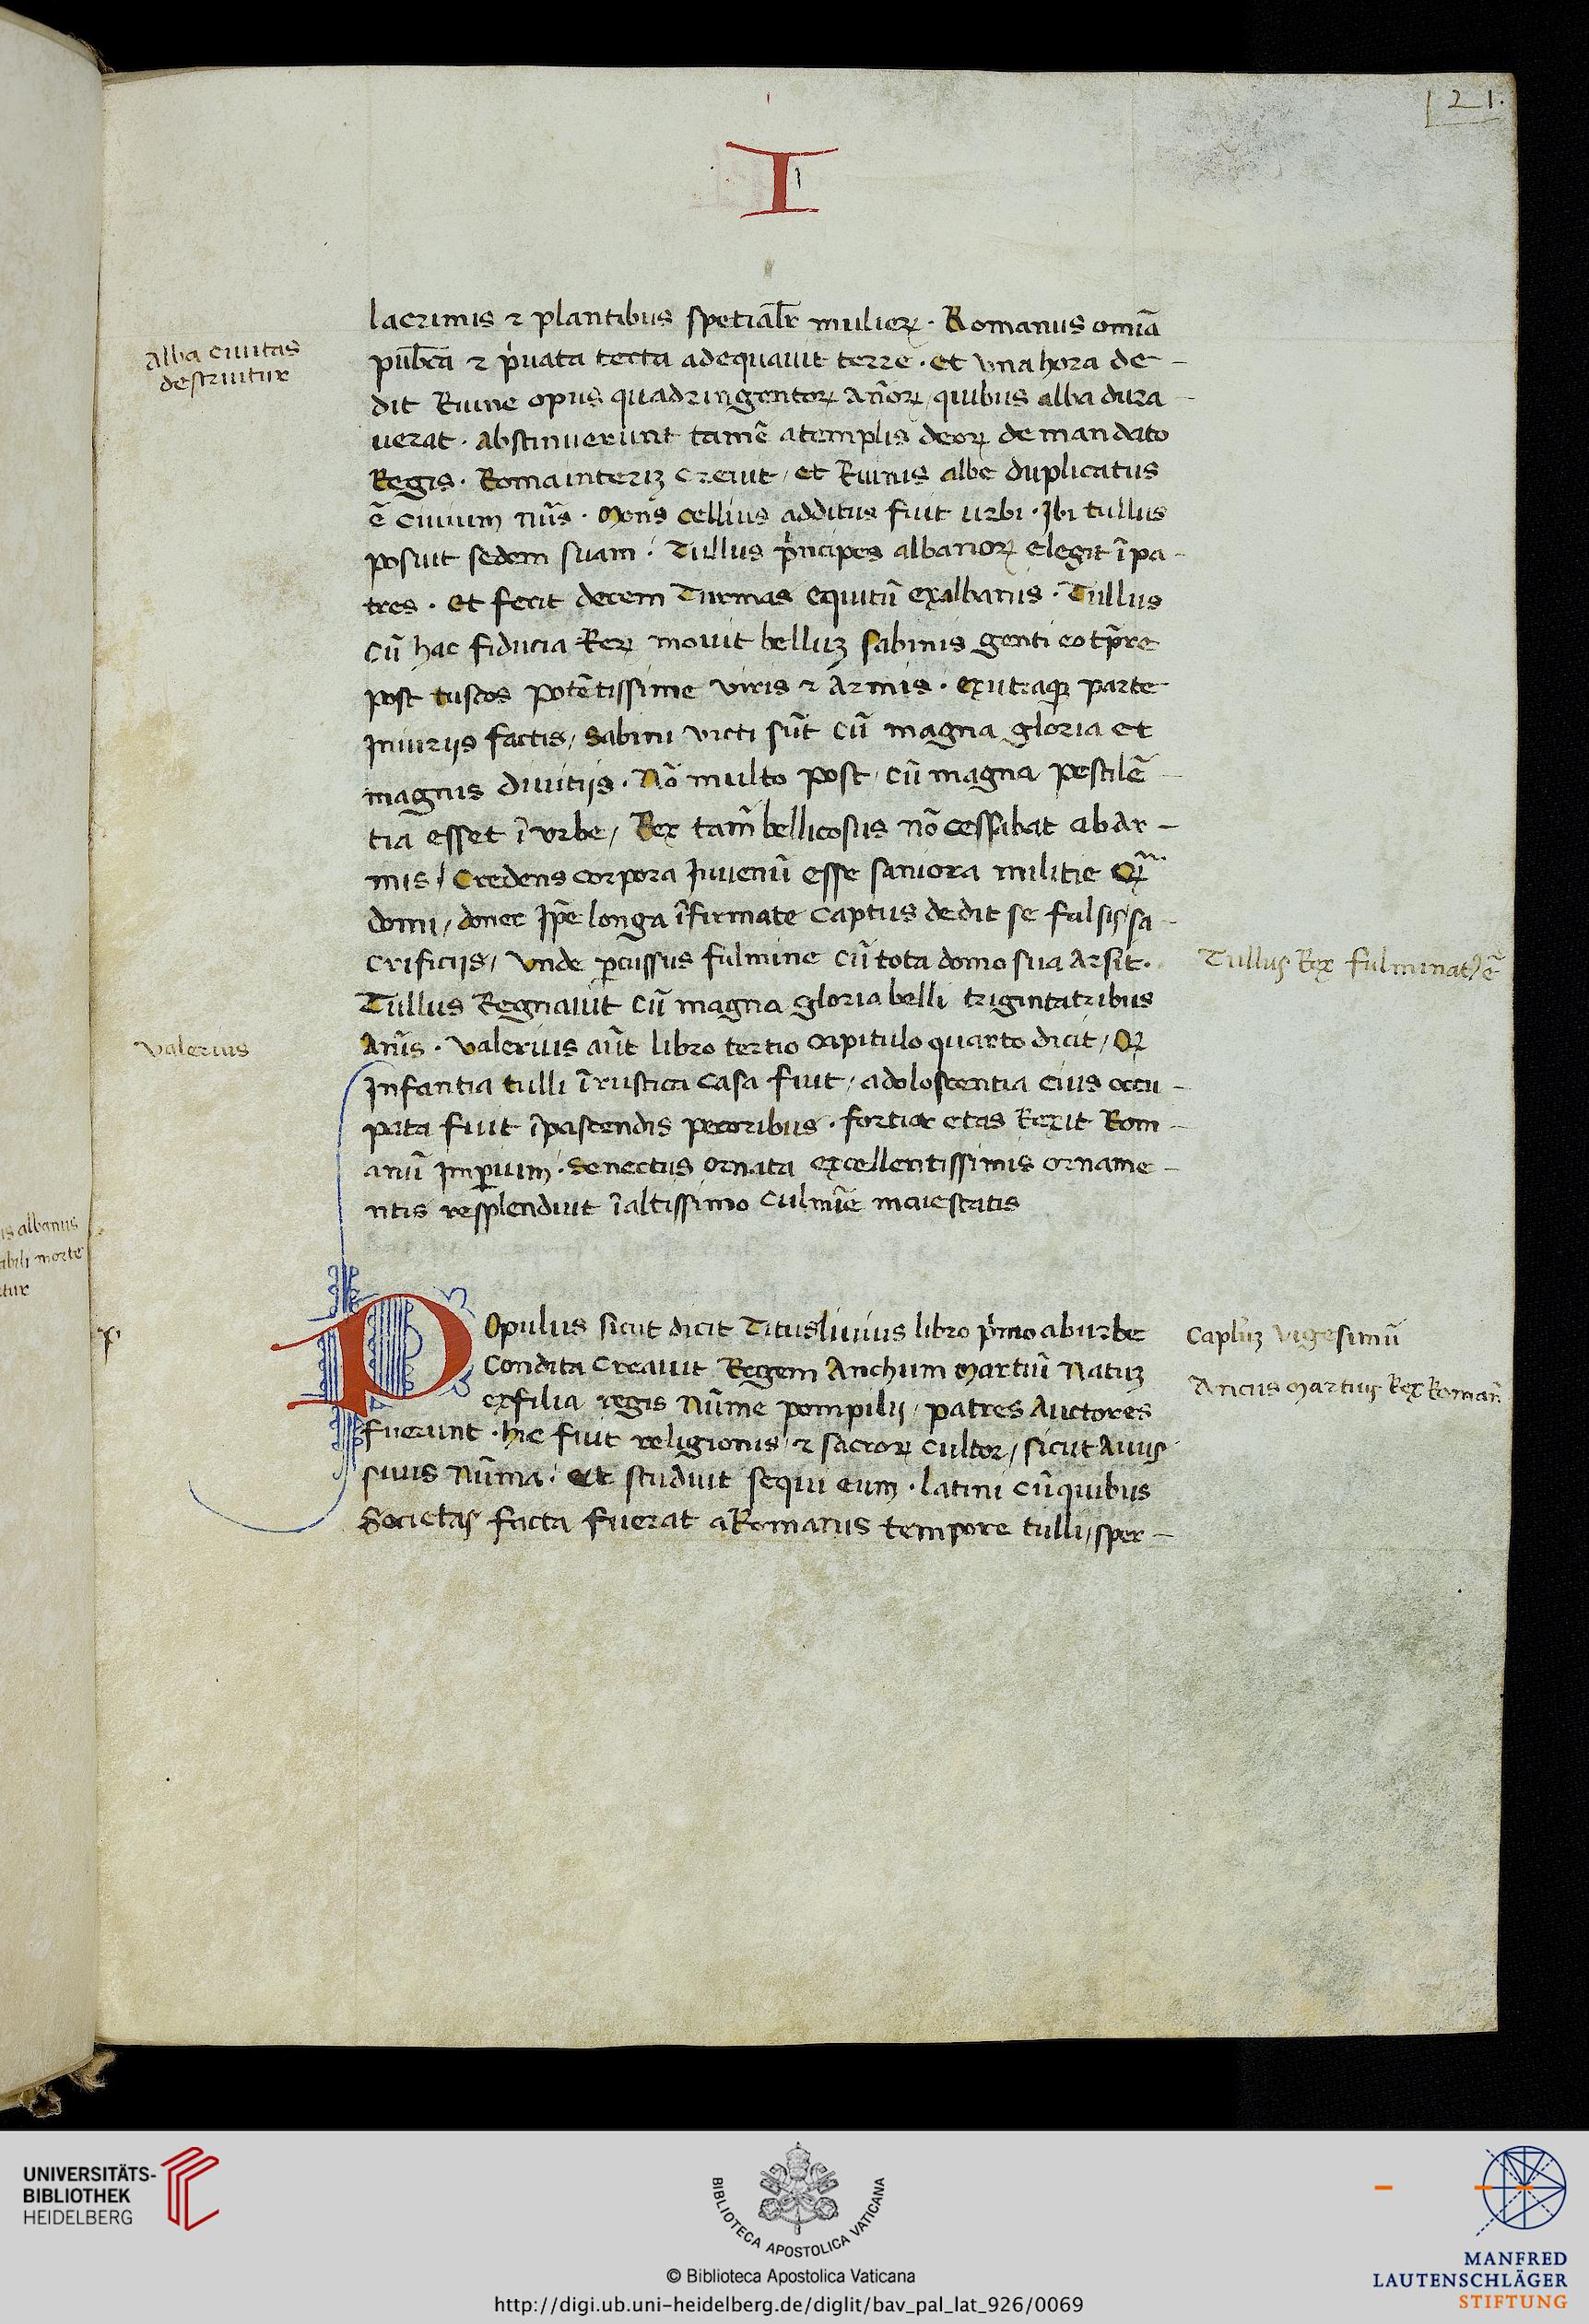 21.
I
lacrimis ⁊ plantibus spetialr̄ mulieꝝ · Romanus omīa
pub̄ca ⁊ pͥuata tecta adequauit terre · et vna hora de-
dit Ruine opus quadringentoꝝ An̄oꝝ / quibus alba dura-
uerat · abstinuerunt tamē atemplis deoꝝ de mandato
Regis · Roma interiꝫ creuit / et Ruinis albe duplicatus
ē ciuium nūs · Mons cellius additus fuit urbi · Ibi tullus
posuit sedem suam · Tullus pͥncipes albanoꝝ elegit īpa-
tres · et fecit decem Turmas equitū exalbanis · Tullus
cū hac fiducia Reꝝ mouit belluꝫ sabinis genti eo tp̄re
post tuscos potētissime viris ⁊ Armis · exutraqꝫ parte
Iniurijs factis / sabini victi sūt cū magna gloria et
magnis diuitijs · Nō multo post / cū magna pestilē-
tia esset ī vrbe / Rex tam̄ bellicosus nō cessabat ab Ar-
mis / Credens corpora Iuuenū esse saniora militie qͣꝫ
domi / donec Ip̄e longa īfirmate captus dedit se falsis / sa-
crificijs / vnde ꝑcussus fulmine cū tota domo sua Arsit.
Tullus Regnauit cū magna gloria belli trigintatribus
An̄is · Valerius aūt libro tertio capitulo quarto dicit / qꝫ
Infantia tulli ī rustica casa fuit / adoloscentia eius occu-
pata fuit īpascendis pecoribus · fortior etas Rexit Rom-
anū Imꝑium · Senectus ornata excellentissimis orname-
ntis resplenduit īaltissimo culmīe maiestatis
Alba ciuitas
destruitur
Tullus Rex fulminat᷒ ē
Valerius
POpulus sicut dicit Tituslīuius libro pͥmo aburbe
Condita Creauit Regem Anchum Martiū Natuꝫ
exfilia regis Nūme pompilij / patres Auctores
fuerunt · hic fuit religionis ⁊ sacroꝝ cultor / sicut Auus
suus Nūma · et studuit sequi eum · latini cū quibus
Societas facta fuerat aRomanis tempore tulli / sper-
Caplūꝫ vigesimū
Ancus Martius Rex Roman̄.
is albanus
abili morte
itur
UNIVERSITÄTS-
BIBLIOTHEK
HEIDELBERG
BIBLIOTECA APOSTOLICA VATICANA
© Biblioteca Apostolica Vaticana
http://digi.ub.uni-heidelberg.de/diglit/bav_pal_lat_926/0069
MANFRED
LAUTENSCHLÄGER
STIFTUNG